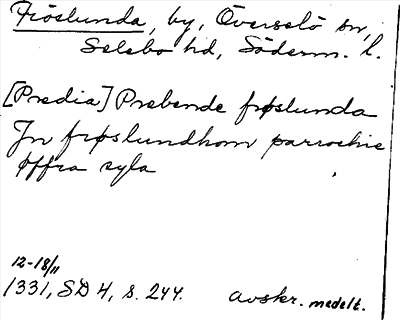 Fröslunda, by, Överselö sn,
Selebo hd, Söderm. l.
[Predia] Prebende frøslunda
Jn frøslundhom parrochie
øffra syla
12-18/11
1331, SD 4, s. 244. avskr. medelt.